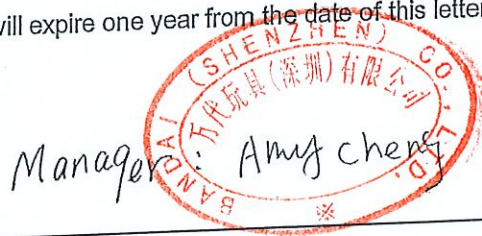 will expire one year from the date of this letter
BANDAI (SHENZHEN) CO., LTD.
万代玩具(深圳)有限公司
Manager: Amy cheng